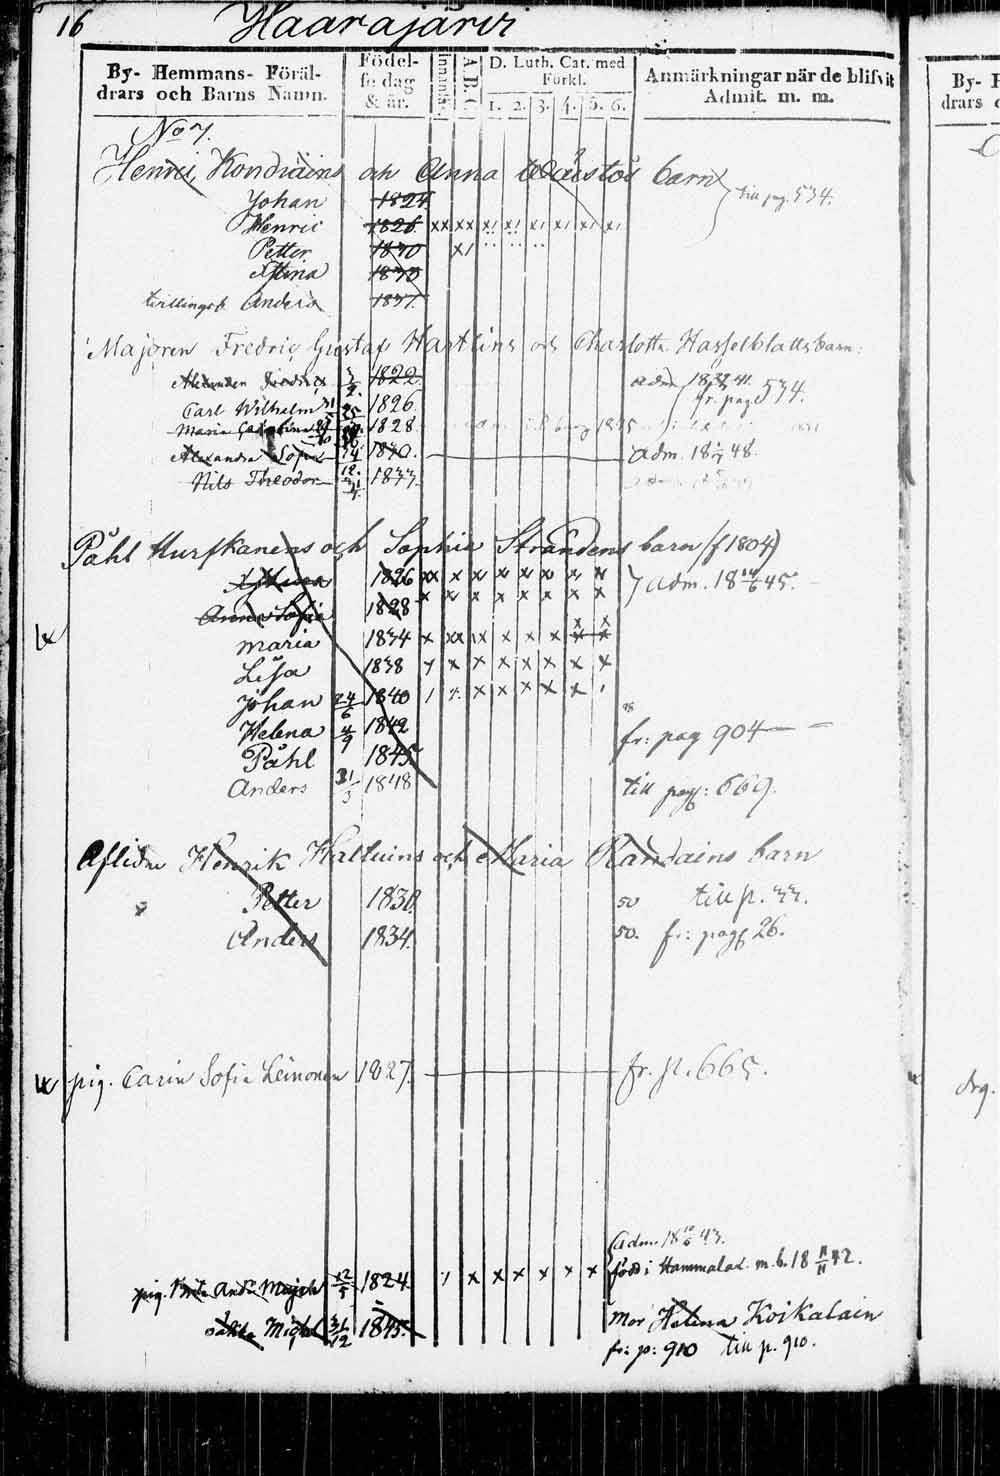 16 Haarajärvi
By- Hemmans- Föräl- drars och Barns Namn.
Födel- se dag & år.
Innanläs.
A B C
D. Luth. Cat. med Förkl.
1. 2. 3. 4. 5. 6.
Anmärkningar när de blifvit Admit. m. m.
By-
drars
No 7.
Henric Kondiains och Anna barn
till pag. 534.
Johan 1824
Henric 1826 xx xx x1 x1 x1 x1 x1 x1
Petter 1830 x1
Stina 1833
Anders 1837
Majoren Fredric Gustaf Hartlins och Charlotta Hasselblatts barn:
Alexander Fredric 1822
fr. pag. 534.
Carl Wilhelm 1826.
Maria 1828
Alexandra Sofia 1830. adm. 18 48.
Nils Theodor 1833.
Påhl Hurskanens och Sophia Strandens barn (f 1804)
1826 xx x x x x x x } adm. 18 45.
Anna Sofia 1828 x x x x x x x x
maria 1834 x xx x x x x x x
Lisa 1838 x x x x x x x
Johan 24/6 1840 x x x x x
Helena 4/9 1842 fr: pag 904
Påhl 1845.
Anders 31/3 1848 till pag: 669.
Aflidne Henrik och Maria barn
Petter 1830. 50 till p. 33.
Anders 1834. 50. fr: pag 26.
pig. Carin Sofia Leinonen 1827. fr. p. 665.
drg.
adm. 18 43.
pig. 1824. x x x x x x född i m. b. 18 11/11 42.
31/12 1845. Mor Helena Koikalain
fr: p: 910 till p. 910.